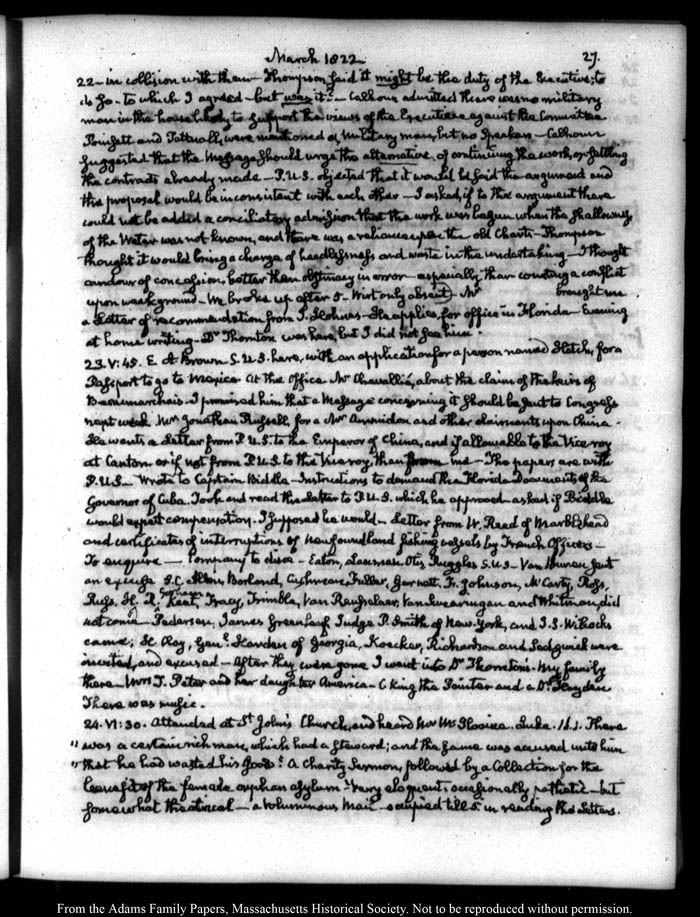 March 1822
27.
22 - in collision with them - Thompson said it might be the duty of the Executive, to
do so - to which I agreed - but was it? - Calhoun admitted there was no military
man in the house likely to support the views of the Executive against the Committee
Poinsett and Tattnall, were mentioned as Military men, but no Speakers - Calhoun
suggested that the Message should urge the alternative, of continuing the work, or settling
the contracts already made - P.U.S. objected that it would be said the argument and
the proposal would be inconsistent with each other - I asked, if to the argument there
could not be added a conciliatory admission that the work was begun when the shallowness
of the Water was not known, and there was a reliance upon the old Charts - Thompson
thought it would bring a charge of heedlessness and waste in the undertaking - I thought
candour of concession, better than obstinacy in error - especially than courting a conflict
upon weak ground - We broke up after 5 - Wirt only absent - Mr brought me
a Letter of recommendation from J. Holmes - He applies for office in Florida - Evening
at home writing - Dr Thornton was here, but I did not see him.
23. V:45. E. A Brown S.U.S. here, with an application for a person named Hatch, for a
Passport to go to Mexico At the Office Mr Chavallié, about the claim of the heirs of
Beaumarchais - I promised him that a Message concerning it should be sent to Congress
next week Mr Jonathan Russell, for a Mr Ammidon and other claimants upon China -
He wants a Letter from P.U.S. to the Emperor of China, and if allowable to the Viceroy
at Canton or if not from P.U.S. to the Viceroy, then from me - The papers are with
P.U.S - Wrote to Captain Biddle - Instructions to demand the Florida Documents of the
Governor of Cuba. Took and read the Letter to P.U.S. which he approved - asked if Biddle
would expect compensation. I supposed he would - Letter from W. Read of Marblehead
and certificates of interruptions of Newfoundland fishing vessels by French Officers -
To enquire - Company to dine - Eaton, Lanman Otis, Ruggles S.U.S - Van Buren sent
an excuse S.C. Allen, Borland, Cushman, Fuller, Garnett, Fr. Johnson, McCarty, Ross,
Russ, H. R. Kent, Tracy, Trimble, Van Rensselaer, Van Swearingen and Whitman, did
not come Pedersen, James Greenleaf Judge P. Smith of New-York, and J.S. Wilcocks
came; H. Clay, Genl Harden of Georgia, Koecker, Richardson and Sedgwick were
invited, and excused - After they were gone I went into Dr Thornton's - My family
there - Mrs T. Peter and her daughter America - C King the Painter and a Dr Hayden
There was music.
24. VI:30. Attended at St John's Church, and heard Mr McIlvaine. Luke. 16.1. There
" was a certain rich man, which had a steward; and the same was accused unto him
" that he had wasted his goods: A Charity Sermon, followed by a Collection for the
benefit of the female orphan asylum - Very eloquent, occasionally pathetic - but
somewhat theatrical - a voluminous Mail - occupied till 5 in reading the Letters.
From the Adams Family Papers, Massachusetts Historical Society. Not to be reproduced without permission.